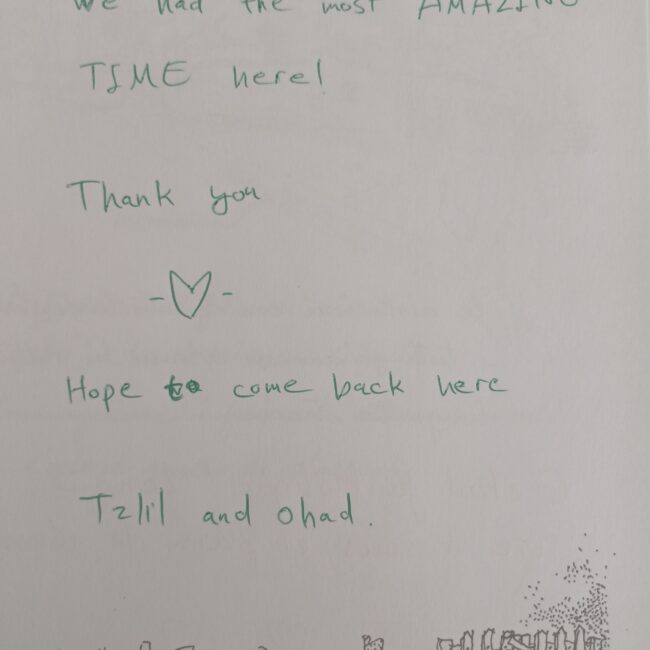 We had the most AMAZING
TIME here!
Thank you
Hope to come back here
Tzlil and ohad.